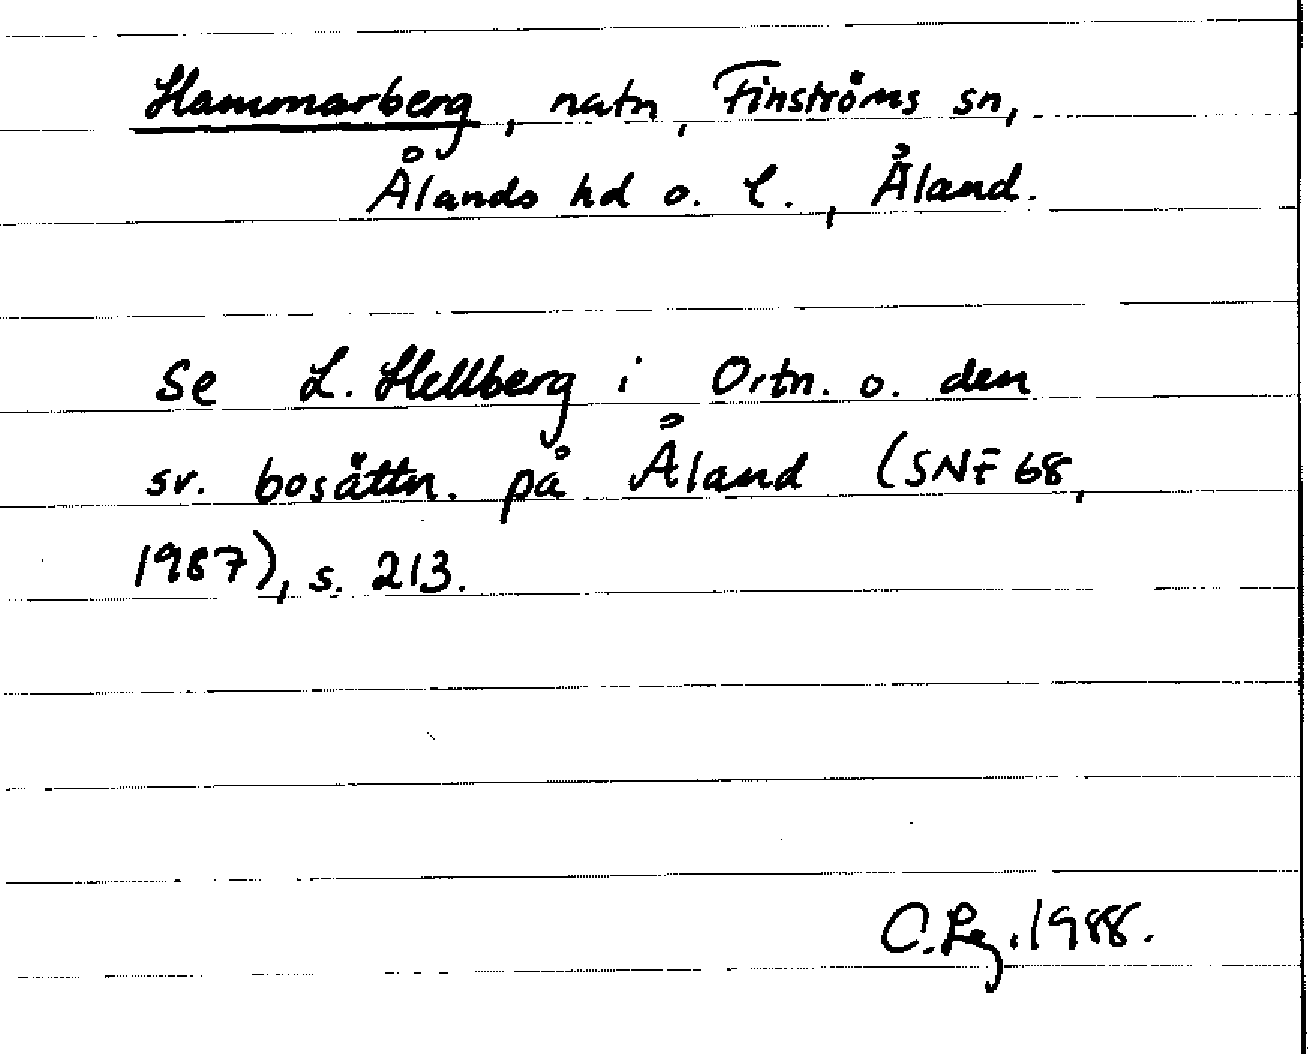 Hammarberg, natn, Finströms sn,
Ålands hd o. l., Åland.
Se L. Hellberg i Ortn. o. den
sv. bosättn. på Åland (SNF 68,
1987), s. 213.
1988.